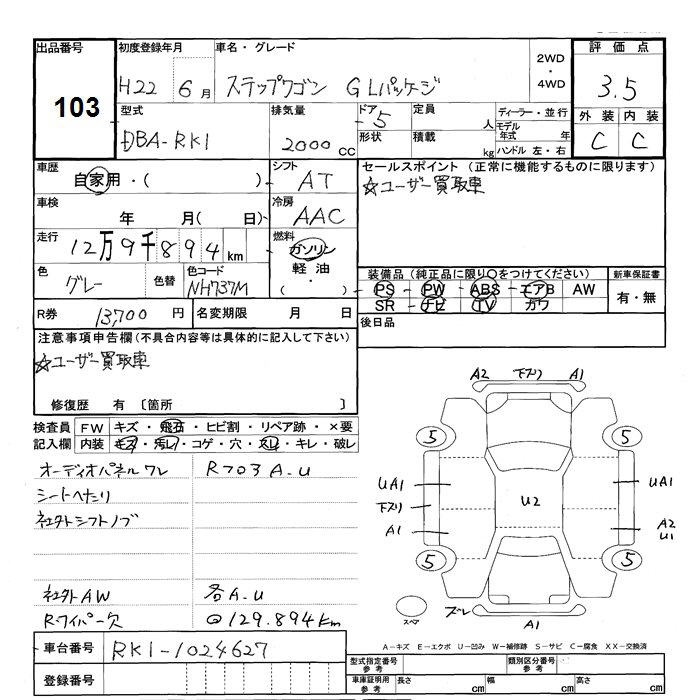 出品番号
103
初度登録年月
H22 6月
車名・グレード
ステップワゴン GLパッケージ
2WD
・
4WD
評価点
3.5
外装 内装
C C
型式
DBA-RK1
排気量
2000 cc
ドア 5
形状
定員 人
積載 kg
ディーラー・並行
モデル年式 年
ハンドル 左・右
車歴
自家用・( )
シフト
AT
セールスポイント (正常に機能するものに限ります)
☆ユーザー買取車
車検
年 月( 日)
冷房
AAC
走行
12万9千894km
燃料
ガソリン
軽油
( )
色
グレー
色替
色コード
NH737M
装備品(純正品に限り○をつけてください)
PS PW ABS エアB AW
SR ナビ TV カワ
新車保証書
有・無
R券 13,700円
名変期限 月 日
後日品
注意事項申告欄(不具合内容等は具体的に記入して下さい)
☆ユーザー買取車
修復歴 有 〔箇所 〕
検査員記入欄
FW キズ・飛石・ヒビ割・リペア跡・×要
内装 キズ・汚レ・コゲ・穴・スレ・キレ・破レ
オーディオパネルワレ R703 A.U
シートヘタリ
社外シフトノブ
社外AW 各A.U
Rワイパー欠 @129.894km
A2 下スリ A1
5 5
UA1 U2 UA1
下スリ
A1 A2
U1
5 5
スペア ズレ A1
A-キズ E-エクボ U-凹み W-補修跡 S-サビ C-腐食 XX-交換済
車台番号 RK1-1024627
登録番号
型式指定番号 参考
類別区分番号 参考
車庫証明用 参考
長さ cm 幅 cm 高さ cm